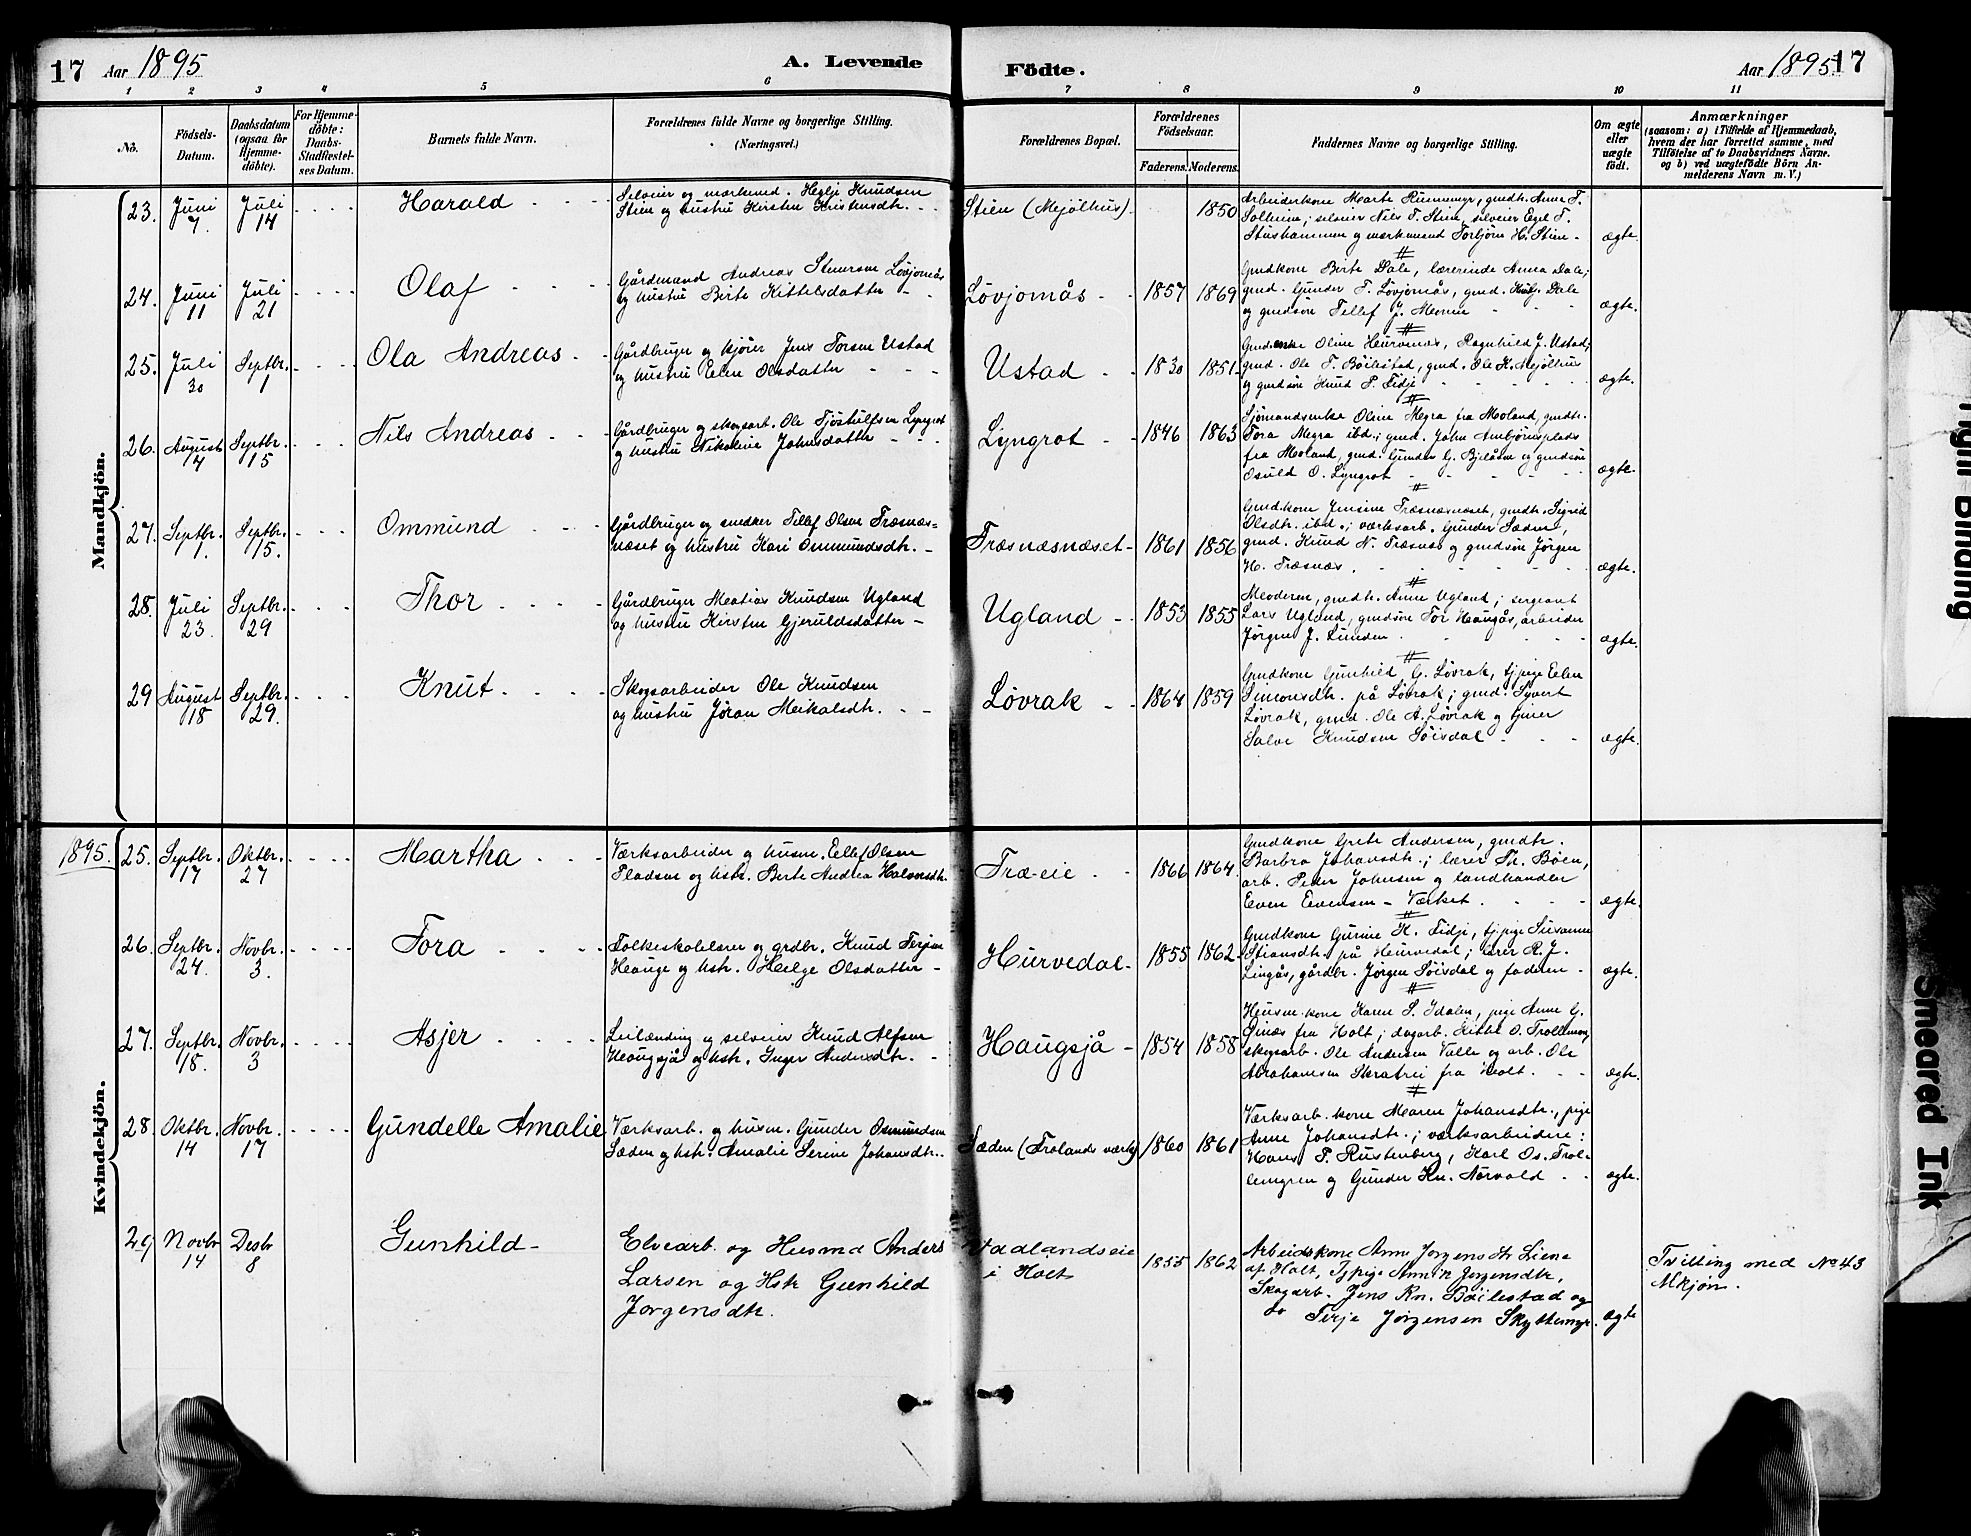 17 Aar 1895 A. Levende Födte. Aar 1895 17
1 2 3 4 5 6 7 8 9 10 11
No.
Födsels-Datum.
Daabsdatum (ogsaa for Hjemme-döbte).
For Hjemme-döbte: Daabs-Stadfæstel-ses Datum.
Barnets fulde Navn.
Forældrenes fulde Navne og borgerlige Stilling. (Næringsvei.)
Forældrenes Bopæl.
Forældrenes Födselsaar.
Faderens. Moderens.
Faddernes Navne og borgerlige Stilling.
Om ægte eller uægte födt.
Anmærkninger
(saasom: a) i Tilfælde af Hjemmedaab, hvem der har forrettet samme, med Tilföielse af to Daabsvidners Navne. og b) ved uægtefödte Börn An-melderens Navn m. V.)
Mandkjön.
23. Juni 7. Juli 14 Harald
Selveier og mærkesmd. Helje Knudsen
Stien og hustru Kirsten Kristensdtr.
Stien (Mjölhus) 1850
Arbeiderkone Marte Rummyr, gmdtr. Anne T.
Solheim; selveier Nils T. Stien, selveier Egel T.
Stushammen og mærkesmand Torbjörn H. Stien ægte.
24. Juni 11 Juli 21 Olaf
Gårdmand Andreas Lövjomås
og hustru Berte Kittelsdatter
Lövjomås 1857 1869
Gmdkone Berte Dale, lærerinde Anna Dale;
gmd. Gunder T. Lövjomås, gmd. Dale
og gmdsön Tellef J. ægte.
25. Juli 30 Septbr. 1 Ola Andreas
Gårdbruger og kjöier Jens Torsen Ustad
og hustru Elen Olsdatter
Ustad 1830 1851
Oline Hurvenes, Ragnhild J. Ustad;
gmd. Ole T. Böilestad, gmd. Ole K. Mjölhus
og gmdsön Knud P. Lidje ægte.
26. August 14 Septbr. 15 Nils Andreas
Gårdbruger og skogsarb. Ole Tjöstulfsen Lyngrot
og hustru Nikoline Johnsdatter
Lyngrot 1846 1863
Sjömandsenke Oline Megra fra Moland, gmdtr.
Tora Megra ibd.; gmd. John Ambjörnsplads
fra Moland, gmd. Gunder G. Bjelåsen og gmdsön
Osuld O. Lyngrot ægte.
27. Septbr. 1. Septbr. 15. Ommund
Gårdbruger og snedker Tellef Olsen Træsnæs-
næset og hustru Kari Ommundsdtr.
Træsnæsnæset 1861 1856
Gmdkone Jensine Træsnæsnæset, gmdtr. Sigrid
Olsdtr. ibd.; værksarb. Gunder Sæden,
gmd. Knud N. Træsnæs og gmdsön Jörgen
H. Træsnæs. ægte.
28. Juli 23. Septbr. 29 Thor
Gårdbruger Matias Knudsen Ugland
og hustru Kirsten Gjeruldsdatter
Ugland 1853 1855
Moderen, gmdtr. Anne Ugland; sergeant
Lars Ugland, gmdsön Tor Haugås, arbeider
Jörgen J. Lunden. ægte.
29 August 18 Septbr. 29. Knut
Skogsarbeider Ole Knudsen
og hustru Jöran Meikalsdtr.
Lövrak 1864 1859
Gmdkone Gunhild G. Lövrak, tjpige Elen
Simonsdtr. på Lövrak; gmd. Syvert
Lövrak, gmd. Ole A. Lövrak og
Salve Knudsen Söisdal ægte.
1895.
Kvindekjön.
25. Septbr. 17 Oktbr. 27 Martha
Værksarbeider og husm. Ellef Olsen
Pladsen og hstr. Berte Andrea Halvorsdtr.
Træ-eie 1866 1864
Gmdkone Grete Andersen, gmdtr.
Barbra Johansdtr.; lærer Th. Böen,
arb. Peder Johnsen og landhandler
Even Evensen - Værket. ægte.
26. Septbr. 24. Novbr. 3. Tora
Folkeskolelærer og grdbr. Knud Terjesen
Hauge og hstr. Helge Olsdatter
Hurvedal 1855 1862
Gmdkone Gurine K. Lidje, tjpige Susanne
Stiansdtr. på Hurvedal; lærer R. J.
Lingås, gårdbr. Jörgen Söisdal og faderen ægte.
27. Septbr. 18. Novbr. 3 Asjer
Leilænding og selveier Knud Alfsen
Haugsjå og hstr. Inger Andersdtr.
Haugsjå 1854 1858
Husm.kone Karen S. Idalen, pige Anne G.
fra Holt; dagarb. O.
skogsarb. Ole Andersen Valle og arb. Ole
Abrahamsen Skratrei fra Holt. ægte.
28. Oktbr. 14 Novbr. 17 Gundelle Amalie
Værksarb. og husm. Gunder Osmundsen
Sæden og hstr. Amalie Serine Johansdtr.
Sæden (Frolands værk) 1860 1861
Værksarb.kone Maren Johansdtr., pige
Anne Johansdtr.; værksarbeidere:
Hans P. Rustenberg, Karl Os. Trol-
lemyren og Gunder Kn. Nörvold ægte.
29 Novbr 14 Desbr 8 Gunhild
Elvearb. og Husmd Anders
Larsen og Hstr Gunhild
Jorgensdtr.
Vadlandseie
i Holt 1855 1862
Arbeidskone Anne Jorgensdtr Liene
af Holt, Tjpige Jorgensdtr,
Skogarb. Jens Kn. Böilestad og
do Terje Jorgensen Skyttemyr. ægte
Tvilling med No 43
Mkjön.
Tight Binding
Smeared Ink